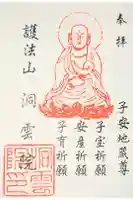 奉拝
子安地蔵尊
子宝祈願
安産祈願
子育祈願
護法山 洞雲院